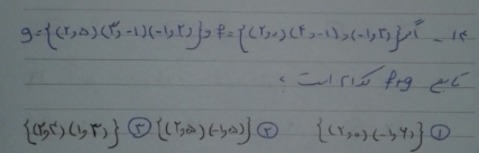 ۱۴ – اگر f={(۲,۰)(۴,-۱),(-۱,۳)} و g={(۲,۵)(۳,-۱)(-۱,۲)}
تابع f+g کدام است ؟
① {(۲,۰)(-۱,۶)} ② {(۲,۵)(-۱,۵)} ③ {(۳,۲)(۱,۳)}